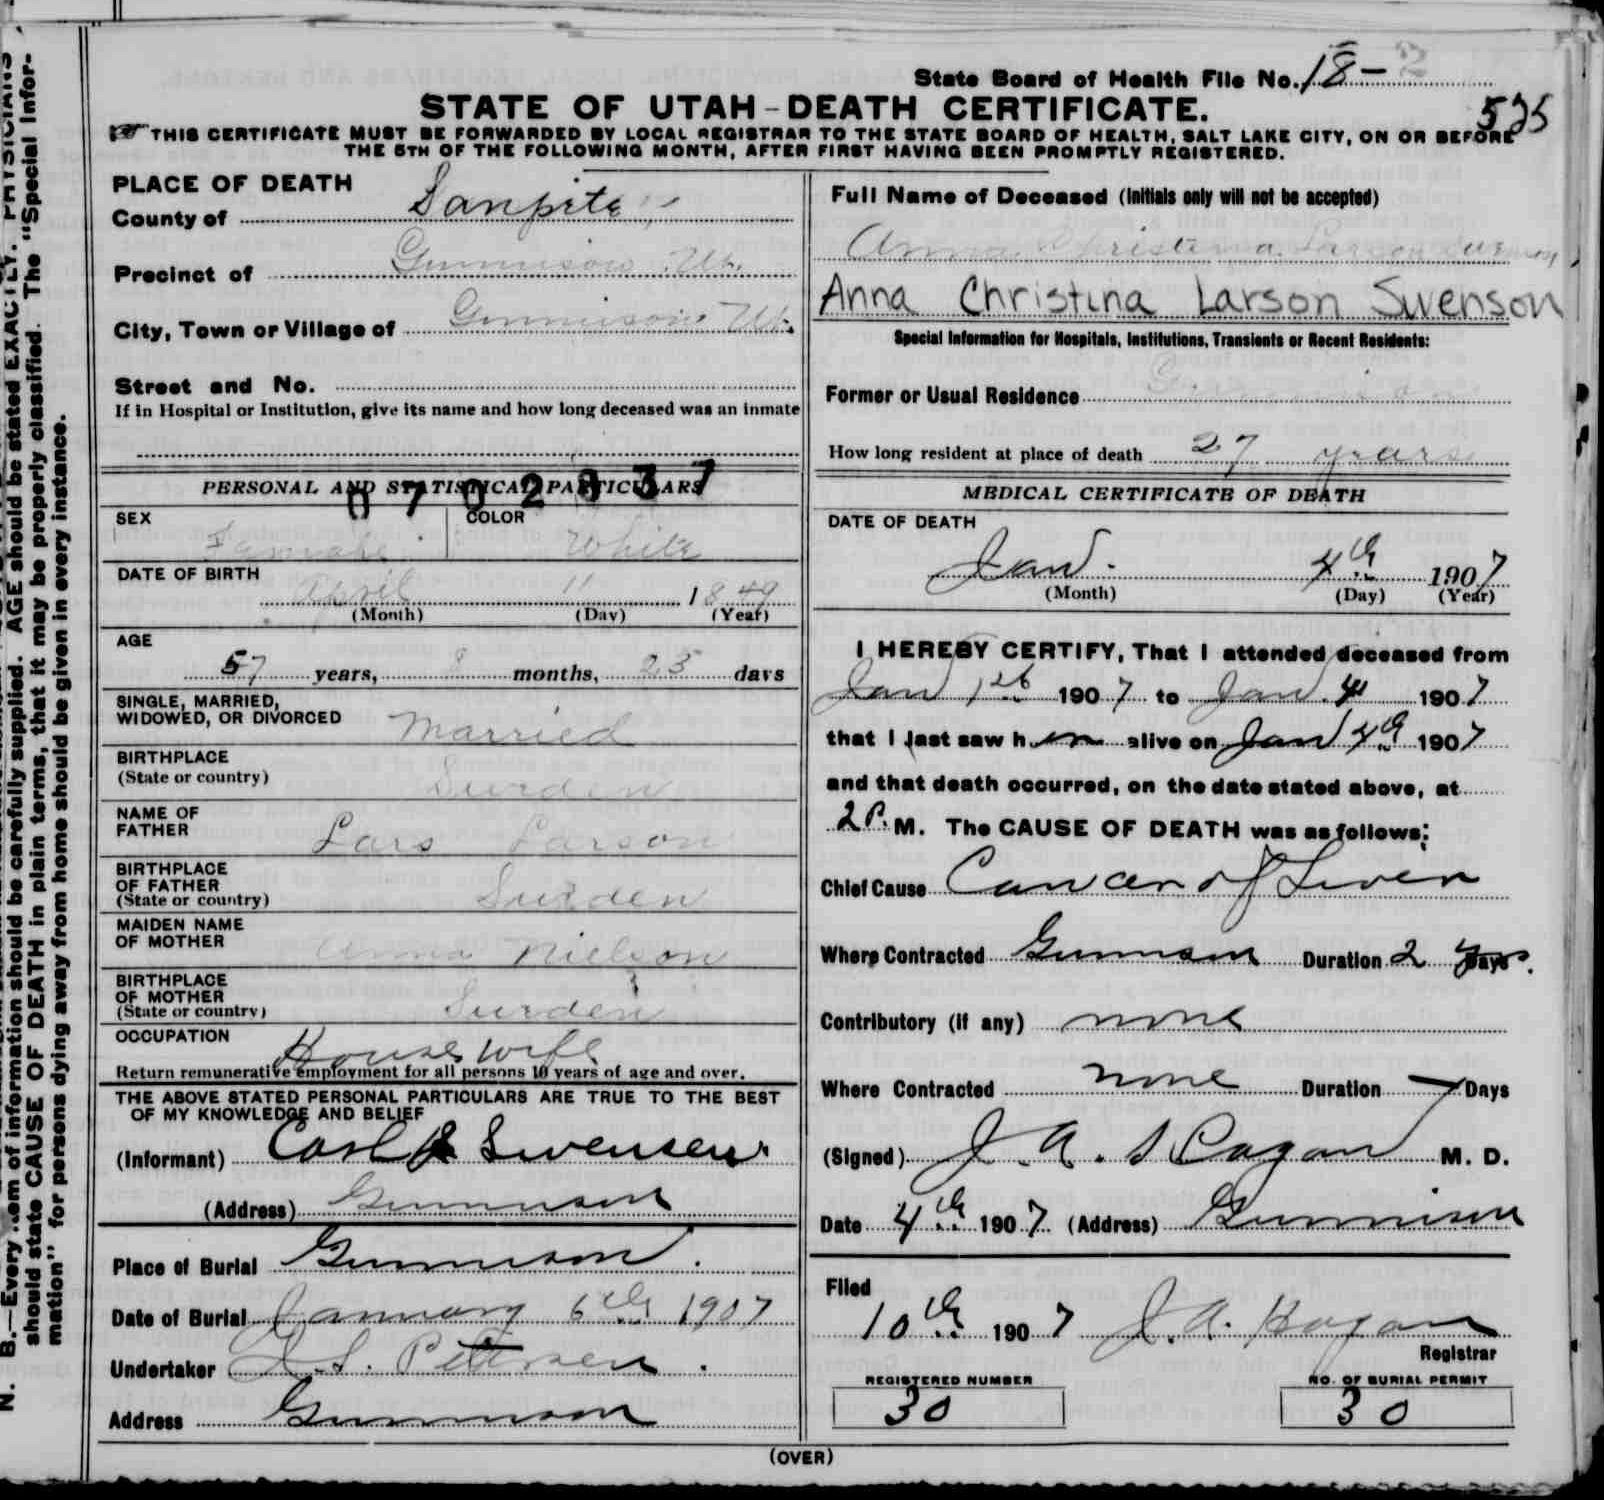 State Board of Health File No. 18-
STATE OF UTAH-DEATH CERTIFICATE.
535
THIS CERTIFICATE MUST BE FORWARDED BY LOCAL REGISTRAR TO THE STATE BOARD OF HEALTH, SALT LAKE CITY, ON OR BEFORE
THE 5TH OF THE FOLLOWING MONTH, AFTER FIRST HAVING BEEN PROMPTLY REGISTERED.
PLACE OF DEATH
County of Sanpete
Precinct of Gunnison Ut.
City, Town or Village of Gunnison Ut.
Street and No.
If in Hospital or Institution, give its name and how long deceased was an inmate
PERSONAL AND STATISTICAL PARTICULARS
SEX Female COLOR White
DATE OF BIRTH
April 11 1849
(Month) (Day) (Year)
AGE
57 years, 8 months, 23 days
SINGLE, MARRIED,
WIDOWED, OR DIVORCED Married
BIRTHPLACE
(State or country) Sweden
NAME OF
FATHER Lars Larson
BIRTHPLACE
OF FATHER
(State or country) Sweden
MAIDEN NAME
OF MOTHER Anna Nielson
BIRTHPLACE
OF MOTHER
(State or country) Sweden
OCCUPATION House wife
Return remunerative employment for all persons 10 years of age and over.
THE ABOVE STATED PERSONAL PARTICULARS ARE TRUE TO THE BEST
OF MY KNOWLEDGE AND BELIEF
(Informant) Carl Swensen
(Address) Gunnison
Place of Burial Gunnison.
Date of Burial January 6th 1907
Undertaker Petersen.
Address Gunnison
Full Name of Deceased (Initials only will not be accepted)
Anna Christina Larson Swenson
Anna Christina Larson Swenson
Special Information for Hospitals, Institutions, Transients or Recent Residents:
Former or Usual Residence Gunnison
How long resident at place of death 27 years
MEDICAL CERTIFICATE OF DEATH
DATE OF DEATH
Jan. 4th 1907
(Month) (Day) (Year)
I HEREBY CERTIFY, That I attended deceased from
Jan 1st 1907 to Jan. 4 1907
that I last saw her alive on Jan 4th 1907
and that death occurred, on the date stated above, at
2 P. M. The CAUSE OF DEATH was as follows:
Chief Cause Cancer of Liver
Where Contracted Gunnison Duration 2 yrs.
Contributory (if any) none
Where Contracted none Duration Days
(Signed) J. A. Hagan M. D.
Date 4th 1907 (Address) Gunnison
Filed
10th 1907 J. A. Hagan
Registrar
REGISTERED NUMBER
30
NO. OF BURIAL PERMIT
30
(OVER)
N. B.—Every item of information should be carefully supplied. AGE should be stated EXACTLY. PHYSICIANS
should state CAUSE OF DEATH in plain terms, that it may be properly classified. The "Special Infor-
mation" for persons dying away from home should be given in every instance.